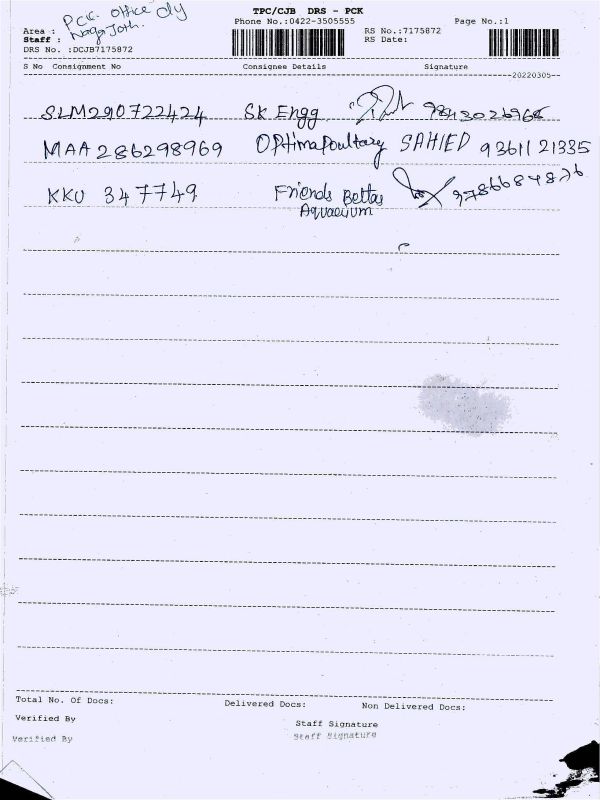 TPC/CJB DRS - PCK
Phone No.:0422-3505555
Page No.:1
Area : PCK Office dly
Staff : Naga Joth.
RS No.:7175872
DRS No. :DCJB7175872
RS Date:
S No Consignment No Consignee Details Signature
20220305
SLM290722424 SK Engg
MAA 286298969 Optima Poultary SAHIED 93611 21335
KKU 347749 Friends Bettas
Aquarium
Total No. Of Docs: Delivered Docs: Non Delivered Docs:
Verified By Staff Signature
Verified By Staff Signature